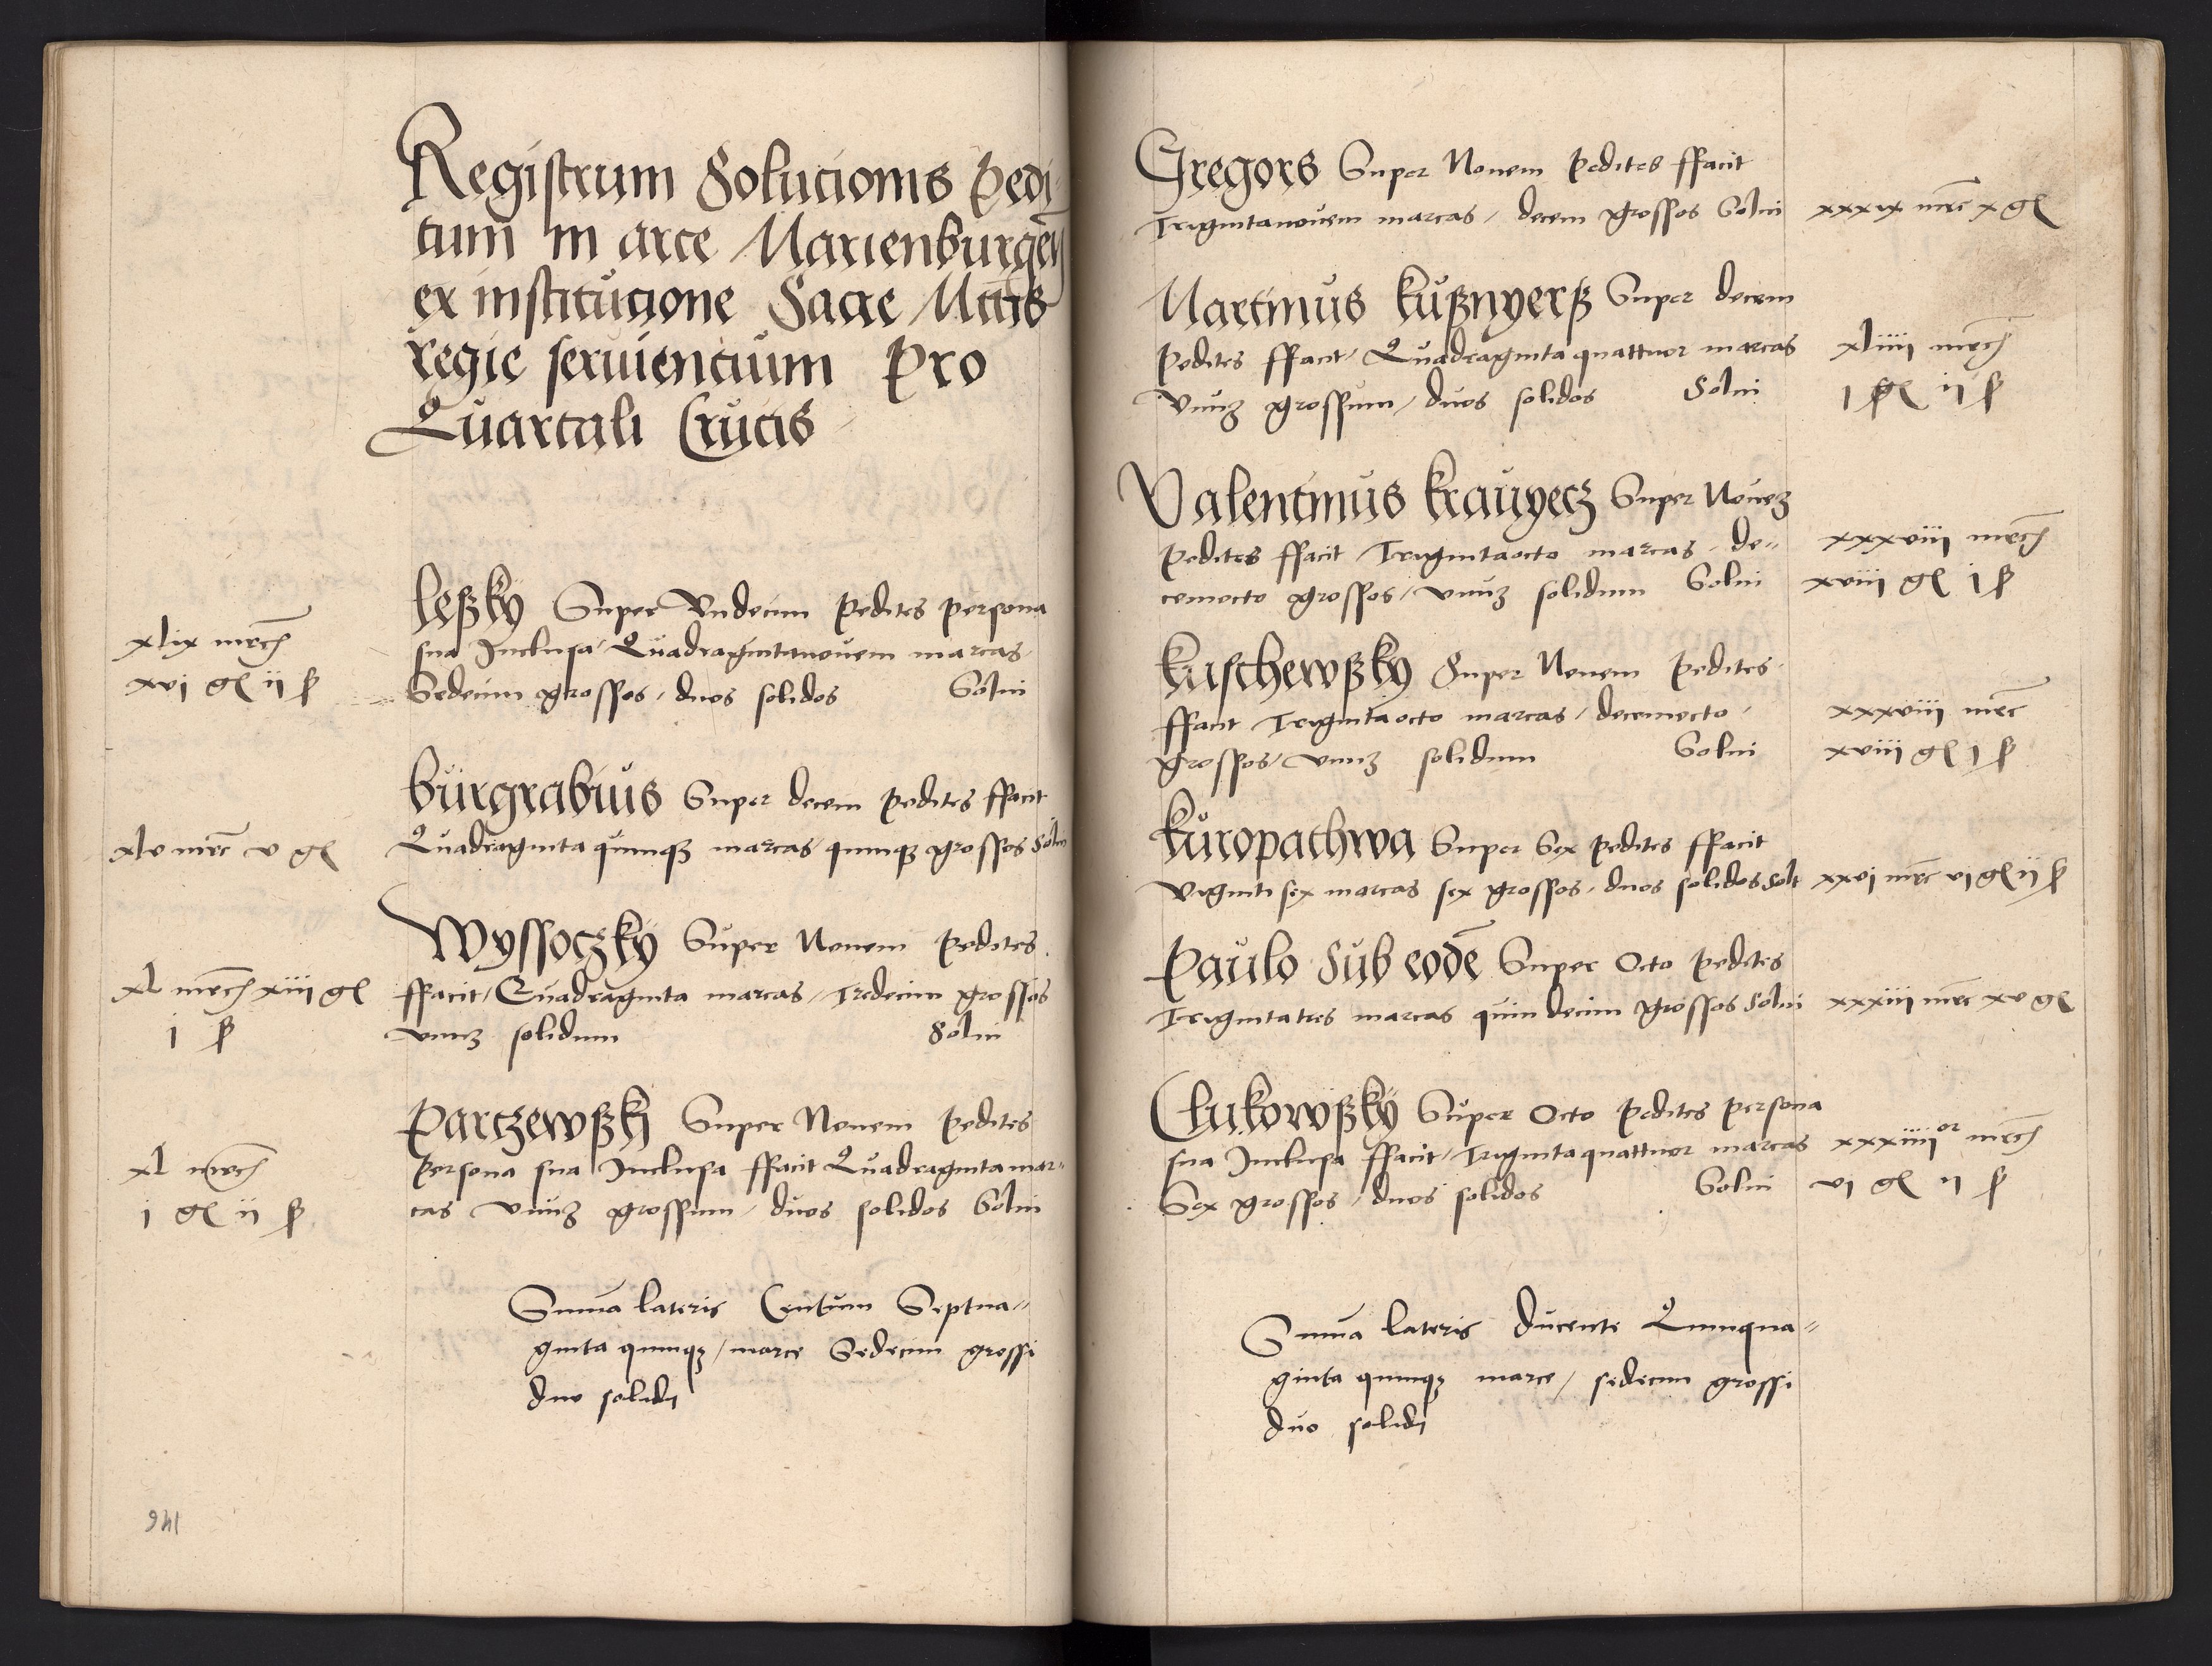 Registrum Solucionis Pedi-
tum in arce Marienburgeñ
ex institucione Sacre Mttis
regie seruiencium Pro
Quartali Crucis
xlix mrch
xvj gl ij ß
Leßky Super Vndecim Pedites persona
sua Inclusa / Quadragintanouem marcas
Sedecim grossos / duos solidos Solui
xlv mrc v gl
Burgrabius Super decem Pedites ffacit
Quadraginta quinqȝ marcas / quinqȝ grossos Solui
xl mrch xiij gl
j ß
Wyssoczky Super Nouem Pedites
ffacit / Quadraginta marcas / Tredecim grossos
vnuȝ solidum Solui
xl mrch
j gl ij ß
Parczewßky Super Nouem Pedites
persona sua Inclusa ffacit Quadraginta mar=
cas vnuȝ grossum / duos solidos Solui
Suma lateris Centum Septua=
ginta quinqȝ / marce Sedecim grossi
duo solidi
146
Gregors Super Nouem Pedites ffacit
Trigintanouem marcas / decem grossos Solui xxxix mrc x gl
Martinus Kußnyerß Super decem
Pedites ffacit / Quadraginta quattuor marcas xliiij mrch
vnuȝ grossum / duos solidos Solui j gl ij ß
Valentinus Krauyecz Super Noueȝ
Pedites ffacit Trigintaocto marcas de= xxxviij mrch
cemocto grossos / vnuȝ solidum Solui xviij gl j ß
Kuschewßky Super Nouem Pedites
ffacit Trigintaocto marcas / decemocto / xxxviij mrc
grossos / vnuȝ solidum Solui xviij gl j ß
Kuropathwa Super Sex Pedites ffacit
viginti sex marcas sex grossos / duos solidos Solt xxvj mrc vj gl ij ß
Paulo Sub eodē Super Octo Pedites
Trigintatres marcas quindecim grossos Solui xxxiij mrc xv gl
Clukowßky Super Octo Pedites persona
sua Inclusa ffacit / Trigintaquattuor marcas xxxiiijor mrch
Sex grossos / duos solidos Solui vj gl ij ß
Suma lateris ducente Quinqua=
ginta quinqȝ marce / sedecim grossi
duo solidi